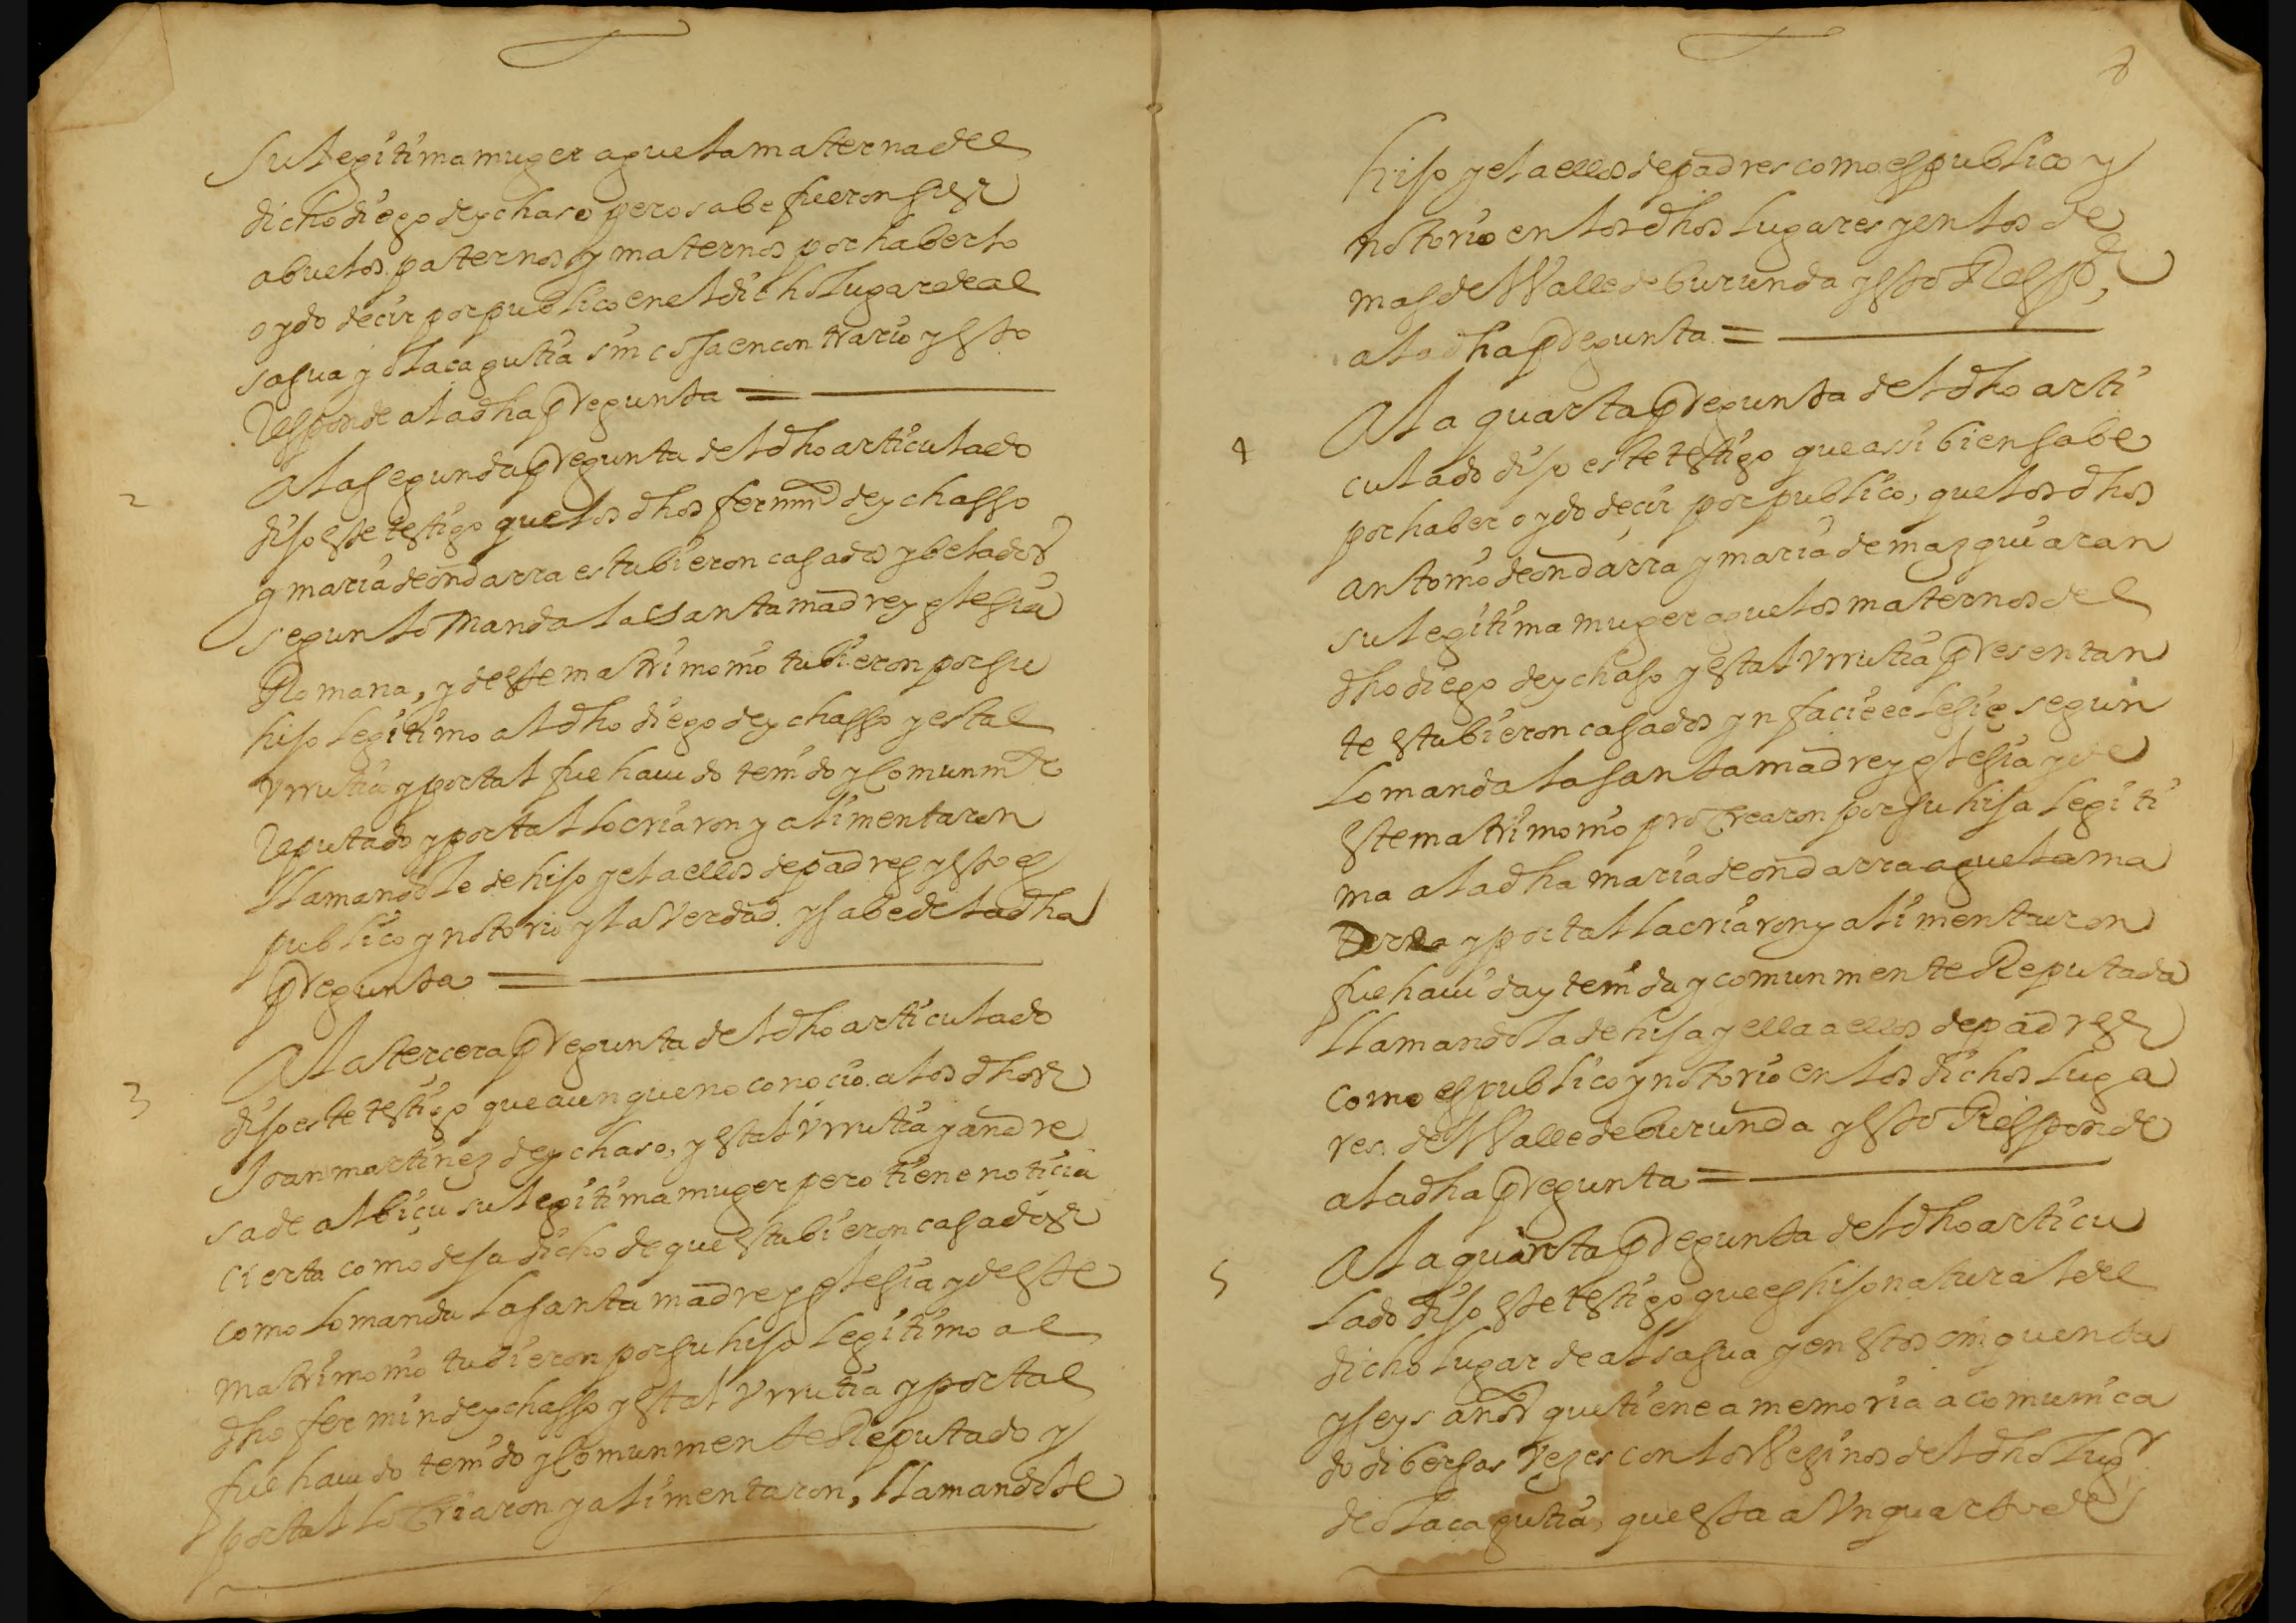 su legitima muger aguela materna del
dicho diego de ychaso pero sabe fueron sus
abuelos paternos y maternos por haberlo
oydo decir por publico en el dicho lugar de al
sasua y olacagutia sin cossa en contrario y esto
Responde a la dha pregunta =
2
A la segunda pregunta del dho articulado
dijo este testigo que los dhos fermin de ychasso
y maria de ondarra estubieron casados y belados
segun lo manda la santa madre yglesia
Romana, y de este matrimonio tubieron por su
hijo legitimo al dho diego de ychasso y estal
vrrutia y por tal fue hauido tenido y comunmte
Reputado y por tal lo criaron y alimentaron
llamandole de hijo y el a ellos de padres y esto es
publico y notorio y la verdad y sabe de la dha
pregunta =
3
A la tercera pregunta del dho articulado
dijo este testigo que aunque no conocio a los dhos
Joan martinez de ychaso, y estal vrrutia y andre
sa de albiçu su legitima muger pero tiene noticia
cierta como deja dicho de que estubieron casados
como lo manda la santa madre yglesia y de este
matrimonio tubieron por su hijo legitimo al
dho fermin de ychasso y estal vrrutia y por tal
fue hauido tenido y comunmente Reputado y
por tal lo criaron y alimentaron, llamandole
8
hijo y el a ellos de padres como es publico y
notorio en los dhos lugares y en los de
mas del Valle de burunda y esto Respde
a la dha pregunta =
4
A la quarta pregunta del dho arti
culado dijo este testigo que assi bien sabe
por haber oydo deçir por publico, que los dhos
antonio de ondarra y maria de mazquiaran
su legitima muger aguelos maternos del
dho diego de ychaso y estal vrrutia presentan
te estubieron casados yn facie eclesie segun
lo manda la santa madre yglesia y de
este matrimonio procrearon por su hija legiti
ma a la dha maria de ondarra aguela ma
terna y por tal la criaron y alimentaron
fue hauida y tenida y comunmente Reputada
llamandola de hija y ella a ellos de padres
como es publico y notorio en los dichos luga
res del Valle de burunda y esto Responde
a la dha pregunta =
5
A la quinta pregunta del dho articu
lado dijo este testigo que es hijo natural del
dicho lugar de alsasua y en estos cinquenta
y seys años que tiene a memoria a comunica
do dibersas vezes con los Vezinos del dho lugr
de olacagutia, que esta a Vn quarto de